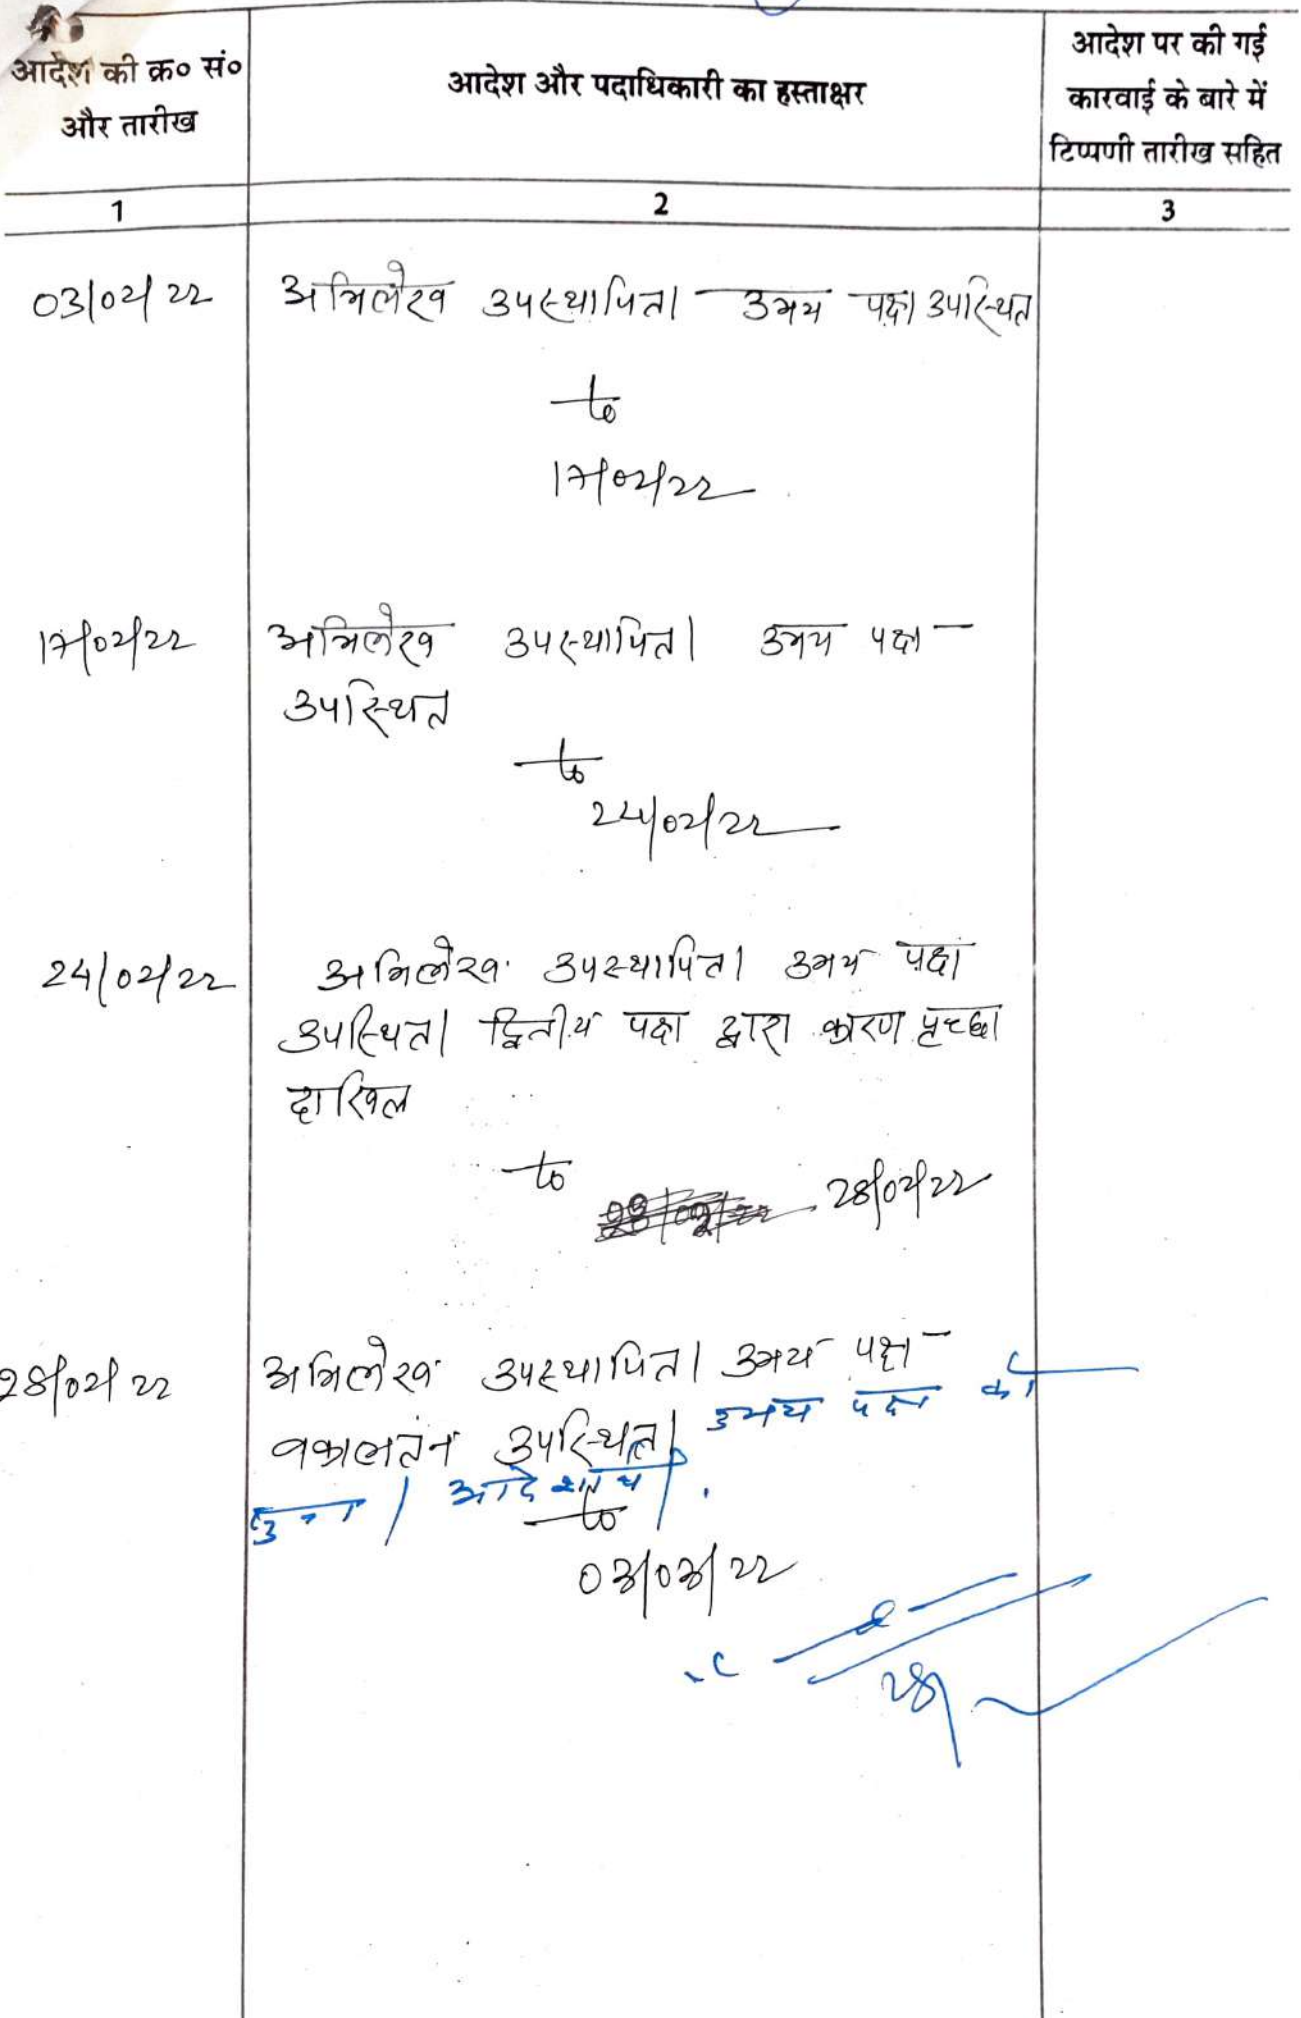 आदेश की क्र० सं०
और तारीख
आदेश और पदाधिकारी का हस्ताक्षर
आदेश पर की गई
कारवाई के बारे में
टिप्पणी तारीख सहित
1 2 3
03/02/22 अभिलेख उपस्थापित। उभय पक्ष उपस्थित
to
17/02/22
17/02/22 अभिलेख उपस्थापित। उभय पक्ष
उपस्थित
to
24/02/22
24/02/22 अभिलेख उपस्थापित। उभय पक्ष
उपस्थित। द्वितीय पक्ष द्वारा कारण पृच्छा
दाखिल
to 28/02/22
28/02/22 अभिलेख उपस्थापित। उभय पक्ष
वकालतन उपस्थित। उभय पक्ष को
सुना। आदेशार्थ।
to
03/03/22
28/